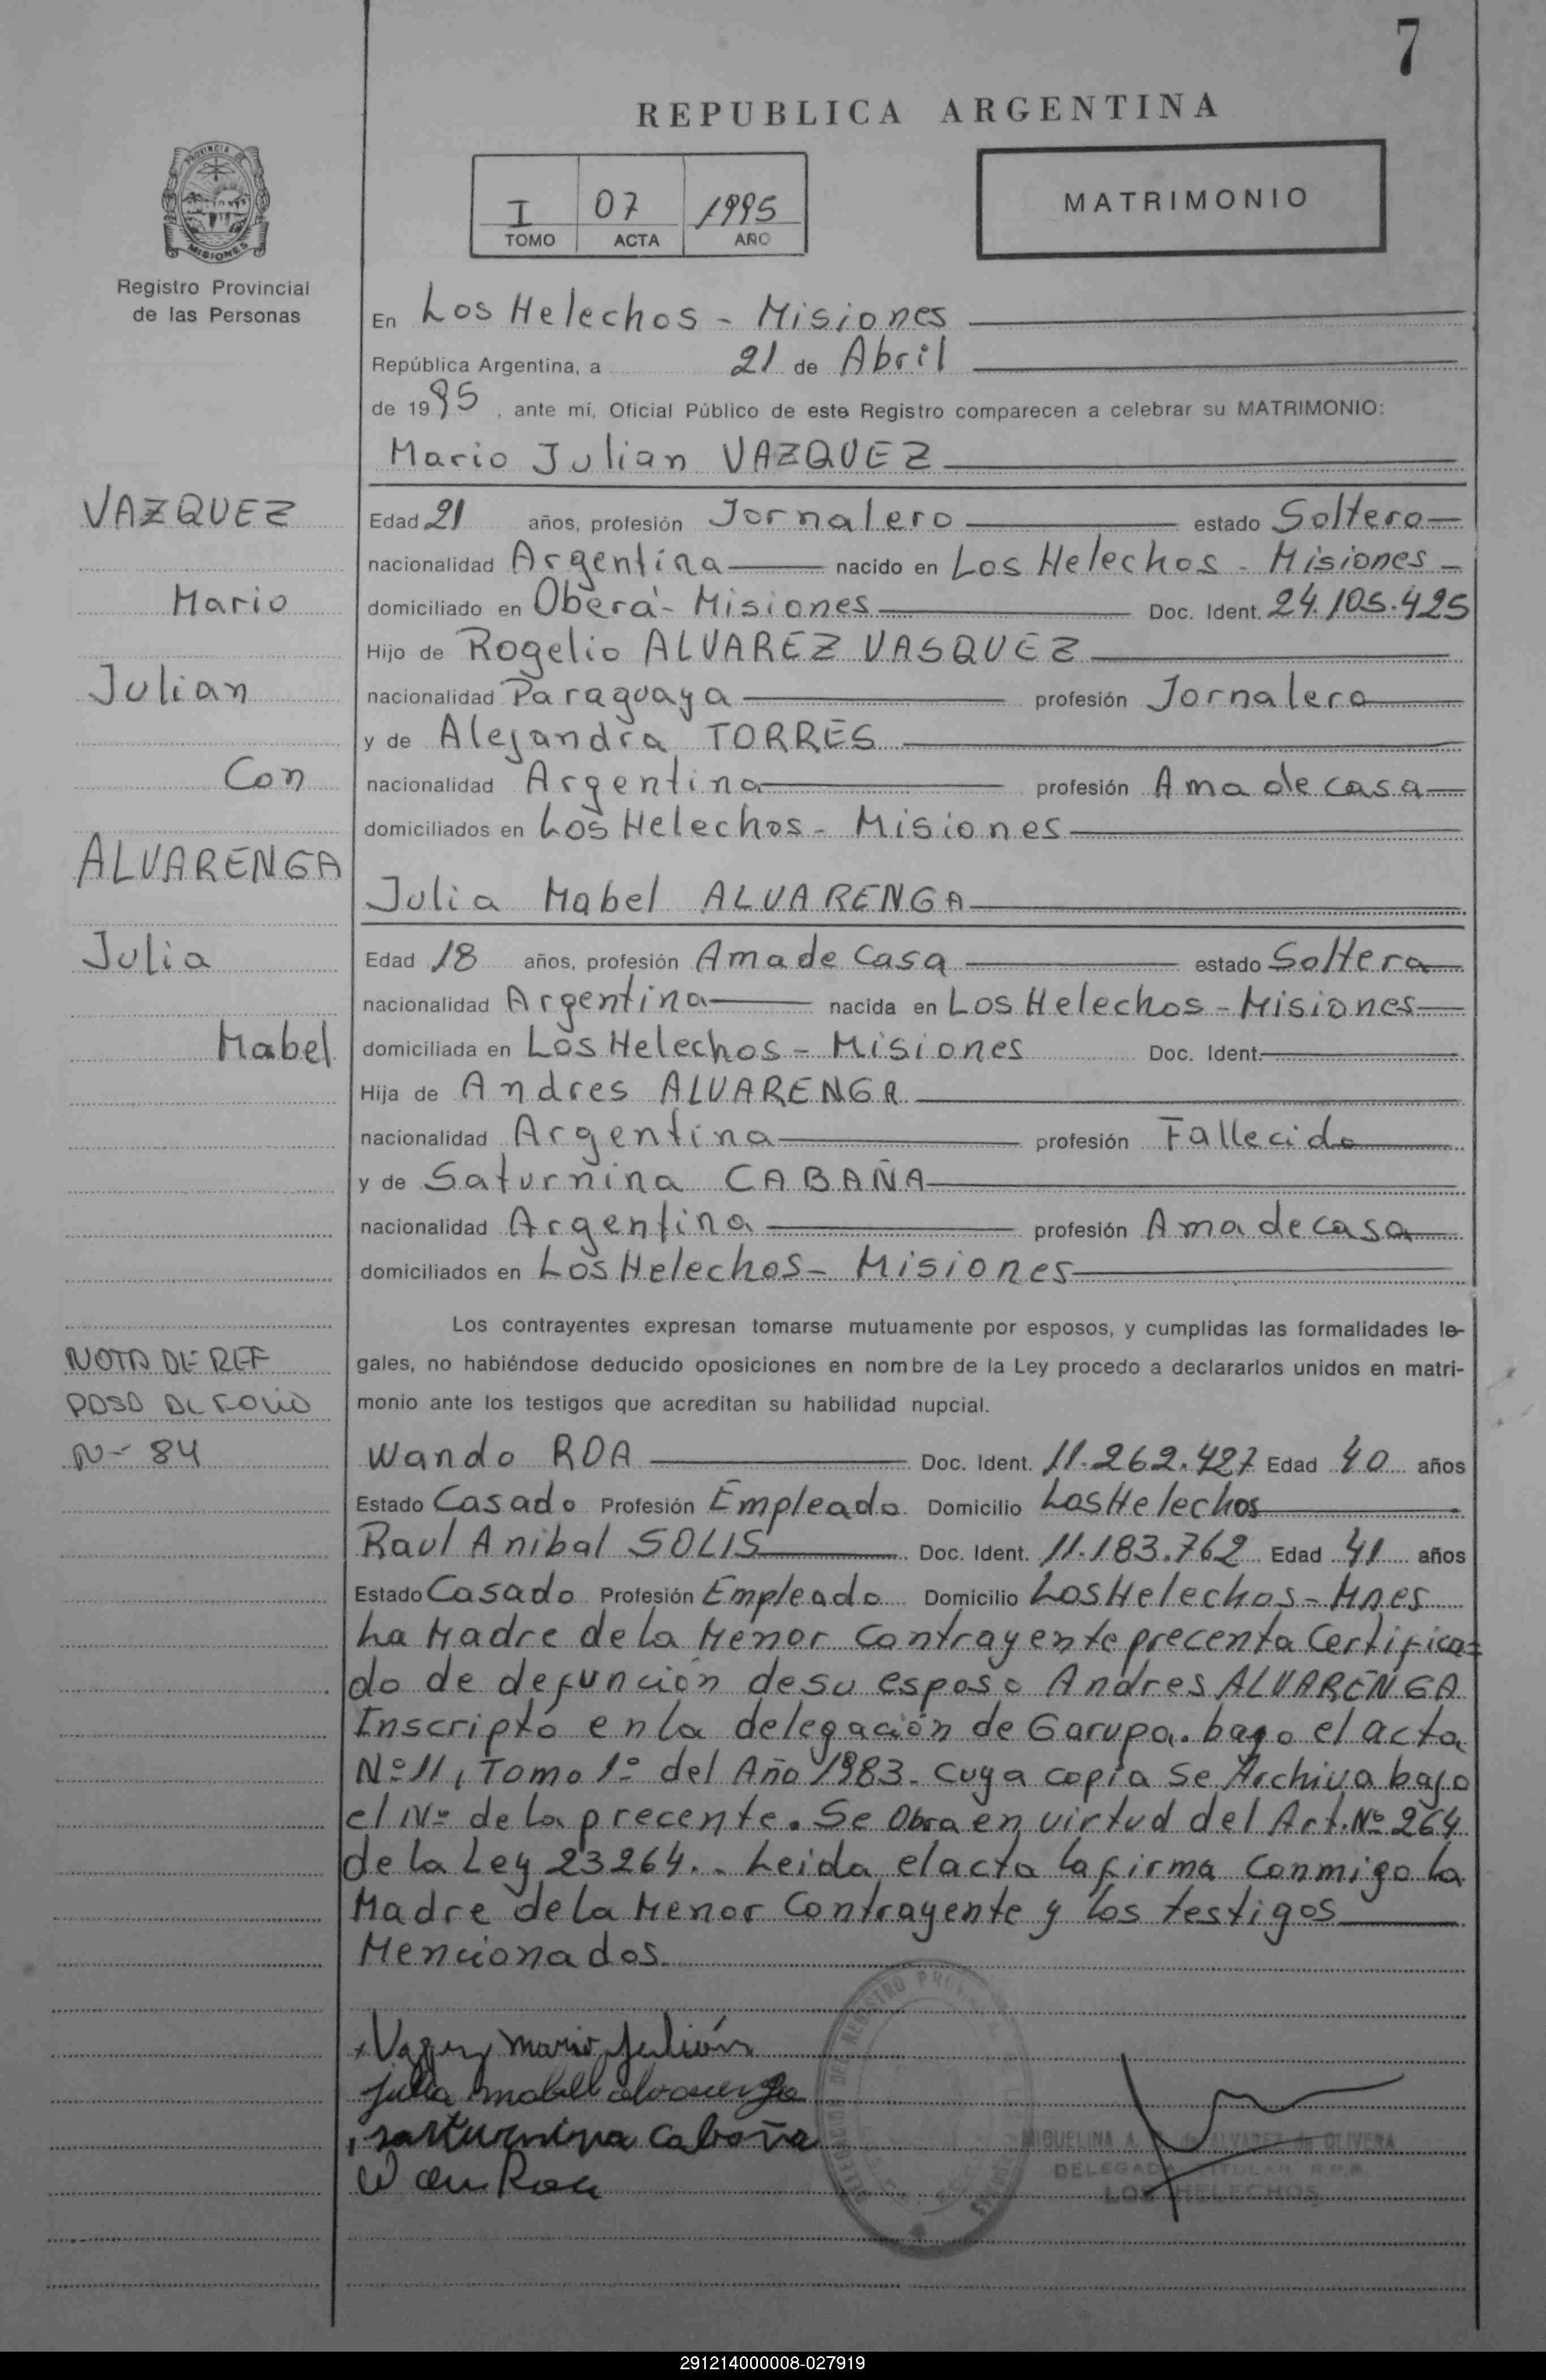 7
REPUBLICA ARGENTINA
I 07 1995
TOMO ACTA AÑO
MATRIMONIO
PROVINCIA DE
MISIONES
Registro Provincial
de las Personas
En Los Helechos - Misiones
República Argentina, a 21 de Abril
de 1995, ante mí, Oficial Público de este Registro comparecen a celebrar su MATRIMONIO:
Mario Julian VAZQUEZ
VAZQUEZ
Mario
Julian
Con
ALVARENGA
Julia
Mabel
Edad 21 años, profesión Jornalero estado Soltero
nacionalidad Argentina nacido en Los Helechos - Misiones -
domiciliado en Oberá - Misiones Doc. Ident. 24.105.425
Hijo de Rogelio ALVAREZ VASQUEZ
nacionalidad Paraguaya profesión Jornalero
y de Alejandra TORRES
nacionalidad Argentina profesión Ama de casa
domiciliados en Los Helechos - Misiones
Julia Mabel ALVARENGA
Edad 18 años, profesión Ama de Casa estado Soltera
nacionalidad Argentina nacida en Los Helechos - Misiones
domiciliada en Los Helechos - Misiones Doc. Ident.
Hija de Andres ALVARENGA
nacionalidad Argentina profesión Fallecido
y de Saturnina CABAÑA
nacionalidad Argentina profesión Ama de casa
domiciliados en Los Helechos - Misiones
Los contrayentes expresan tomarse mutuamente por esposos, y cumplidas las formalidades le-
gales, no habiéndose deducido oposiciones en nombre de la Ley procedo a declararlos unidos en matri-
monio ante los testigos que acreditan su habilidad nupcial.
NOTA DE REF
PASA AL FOLIO
N- 84
Wando ROA Doc. Ident. 11.262.427 Edad 40 años
Estado Casado Profesión Empleado Domicilio Los Helechos
Raul Anibal SOLIS Doc. Ident. 11.183.762 Edad 41 años
Estado Casado Profesión Empleado Domicilio Los Helechos - Mnes
La Madre de la Menor Contrayente precenta Certifica=
do de defunción de su esposo Andres ALVARENGA
Inscripto en la delegación de Garupa. bajo el acta
Nº 11, Tomo 1º del Año 1983. Cuya copia Se Archiva bajo
el Nº de la precente. Se Obra en virtud del Art. Nº 264
de la Ley 23264.. Leida el acta la firma Conmigo la
Madre de la Menor Contrayente y los testigos
Mencionados.
Mario Julián
Julia Mabel
Saturnina Cabaña
Roa
MIQUELINA A. de ALVAREZ de OLIVERA
DELEGADA TITULAR R.P.P.
LOS HELECHOS
291214000008-027919